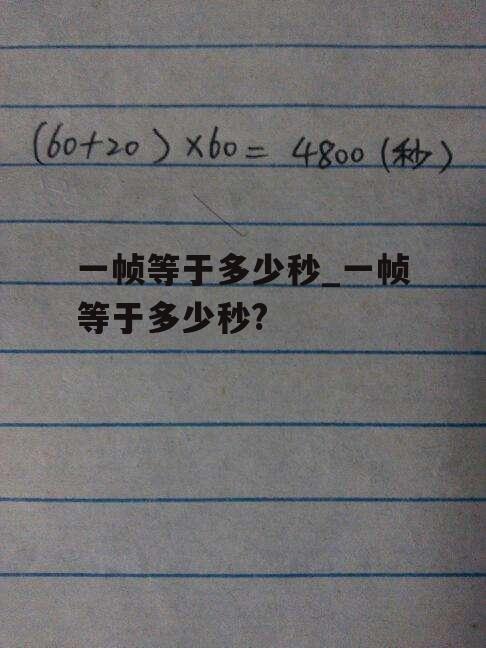 (60+20)×60= 4800(秒)
一帧等于多少秒_一帧
等于多少秒?